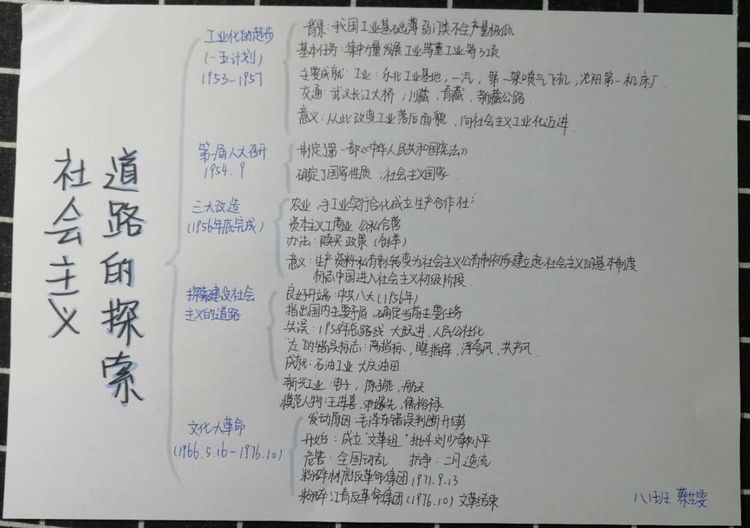 社会主义
道路的探索
工业化的起步
(一五计划)
1953-1957
背景:我国工业基础薄弱门类不全产量极低
基本任务:集中力量发展工业等重工业等3项
主要成就:工业:东北工业基地,一汽,第一架喷气飞机,沈阳第一机床厂
交通:武汉长江大桥,川藏、青藏、新藏公路.
意义:从此改变工业落后面貌,向社会主义工业化迈进
第一届人大召开
1954.9
制定了第一部《中华人民共和国宪法》
确定了国家性质:社会主义国家.
三大改造
(1956年底完成)
农业、手工业实行合化成立生产合作社:
资本主义工商业 公私合营
办法:赎买政策(创举)
意义:生产资料私有制转变为社会主义公有制初步建立起社会主义的基本制度
标志中国进入社会主义初级阶段.
探索建设社会
主义的道路
良好开端:中共八大(1956年)
指出国内主要矛盾,确定当前主要任务
失误:1958年总路线 大跃进、人民公社化
"左"的错误标志:高指标、瞎指挥、浮夸风、共产风.
成就:石油工业 大庆油田.
新兴工业:电子、原子能、航天
模范人物:王进喜、邓稼先、焦裕禄.
文化大革命
(1966.5.16-1976.10)
发动原因:毛泽东错误判断形势
开始:成立"文革组"批斗刘少奇邓小平
危害:全国动乱 抗争:二月逆流
粉碎林彪反革命集团1971.9.13
粉碎江青反革命集团(1976.10)文革结束